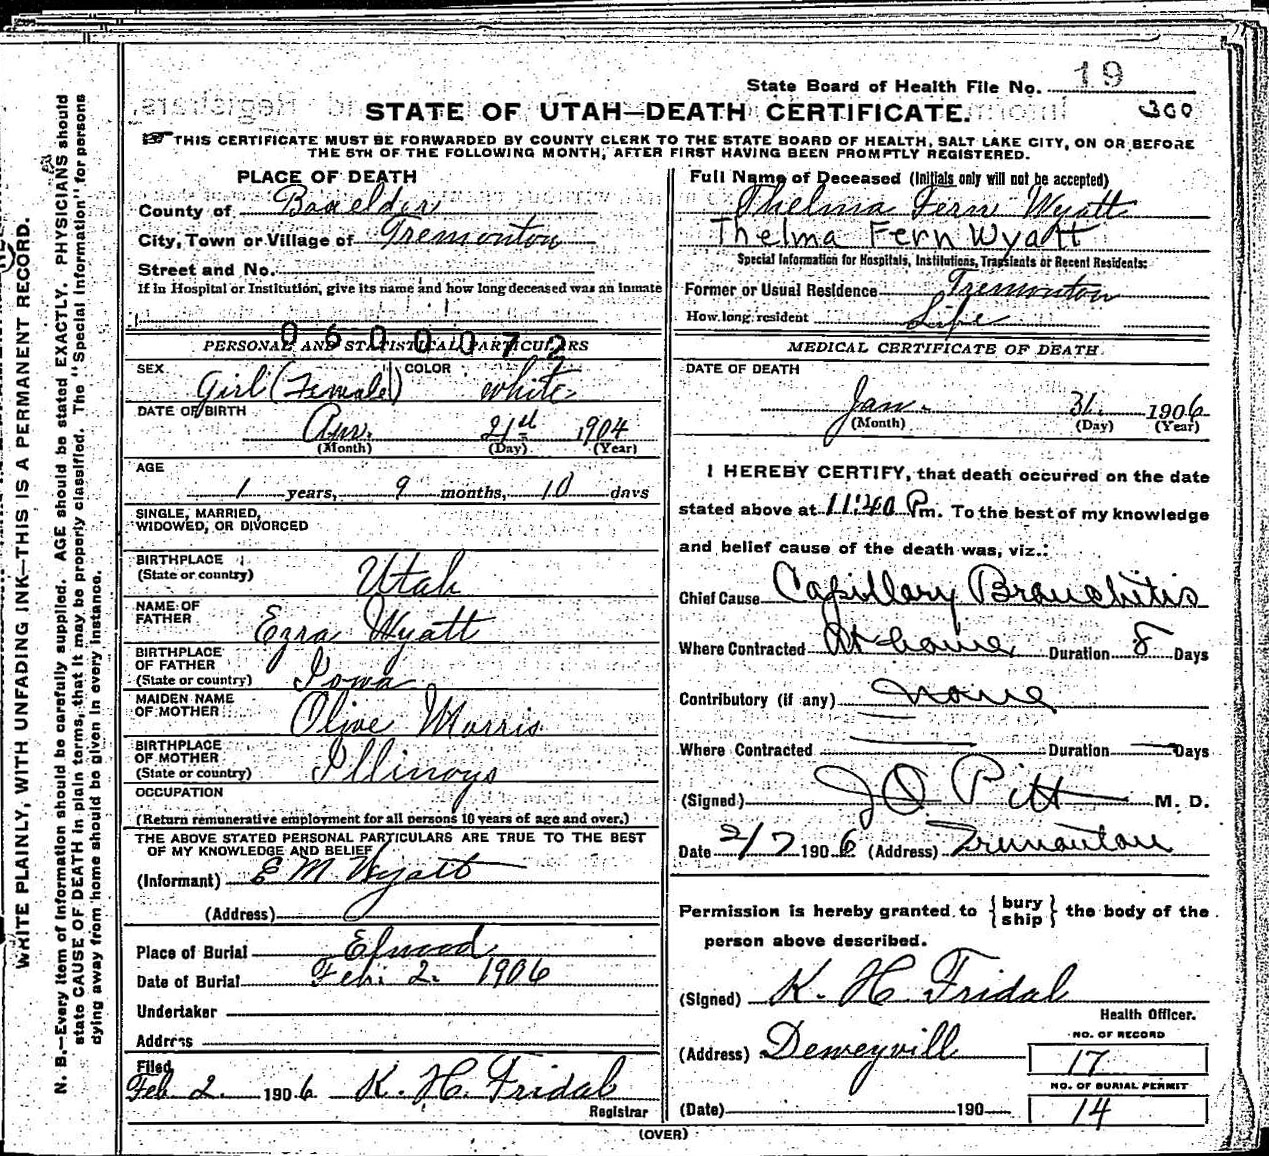 State Board of Health File No. 19
STATE OF UTAH—DEATH CERTIFICATE.
300
THIS CERTIFICATE MUST BE FORWARDED BY COUNTY CLERK TO THE STATE BOARD OF HEALTH, SALT LAKE CITY, ON OR BEFORE
THE 5TH OF THE FOLLOWING MONTH, AFTER FIRST HAVING BEEN PROMPTLY REGISTERED.
PLACE OF DEATH
County of Boxelder
City, Town or Village of Tremonton
Street and No.
If in Hospital or Institution, give its name and how long deceased was an inmate
0600072
PERSONAL AND STATISTICAL PARTICULARS
SEX Girl (Female) COLOR white
DATE OF BIRTH
Apr. 21st 1904
(Month) (Day) (Year)
AGE
1 years, 9 months, 10 days
SINGLE, MARRIED,
WIDOWED, OR DIVORCED
BIRTHPLACE
(State or country) Utah
NAME OF
FATHER Ezra Wyatt
BIRTHPLACE
OF FATHER
(State or country) Iowa
MAIDEN NAME
OF MOTHER Olive Morris
BIRTHPLACE
OF MOTHER
(State or country) Illinoys
OCCUPATION
(Return remunerative employment for all persons 10 years of age and over.)
THE ABOVE STATED PERSONAL PARTICULARS ARE TRUE TO THE BEST
OF MY KNOWLEDGE AND BELIEF
(Informant) E M Wyatt
(Address)
Place of Burial Elwood
Date of Burial Feb. 2. 1906
Undertaker
Address
Filed
Feb 2 1906 K. H. Fridal
Registrar
Full Name of Deceased (Initials only will not be accepted)
Thelma Fern Wyatt
Thelma Fern Wyatt
Special Information for Hospitals, Institutions, Transients or Recent Residents:
Former or Usual Residence Tremonton
How long resident Life
MEDICAL CERTIFICATE OF DEATH.
DATE OF DEATH
Jan. 31. 1906
(Month) (Day) (Year)
I HEREBY CERTIFY, that death occurred on the date
stated above at 11:40 Pm. To the best of my knowledge
and belief cause of the death was, viz.:
Chief Cause Capillary Bronchitis
Where Contracted At home Duration 8 Days
Contributory (if any) none
Where Contracted — Duration — Days
(Signed) J O Pitt M. D.
Date 2/7 1906 (Address) Tremonton
Permission is hereby granted to {bury ship} the body of the
person above described.
(Signed) K. H Fridal
Health Officer.
(Address) Deweyvill
NO. OF RECORD
17
NO. OF BURIAL PERMIT
(Date) 190 14
(OVER)
WRITE PLAINLY, WITH UNFADING INK—THIS IS A PERMANENT RECORD.
N. B.—Every item of information should be carefully supplied. AGE should be stated EXACTLY. PHYSICIANS should
state CAUSE OF DEATH in plain terms, that it may be properly classified. The "Special Information" for persons
dying away from home should be given in every instance.